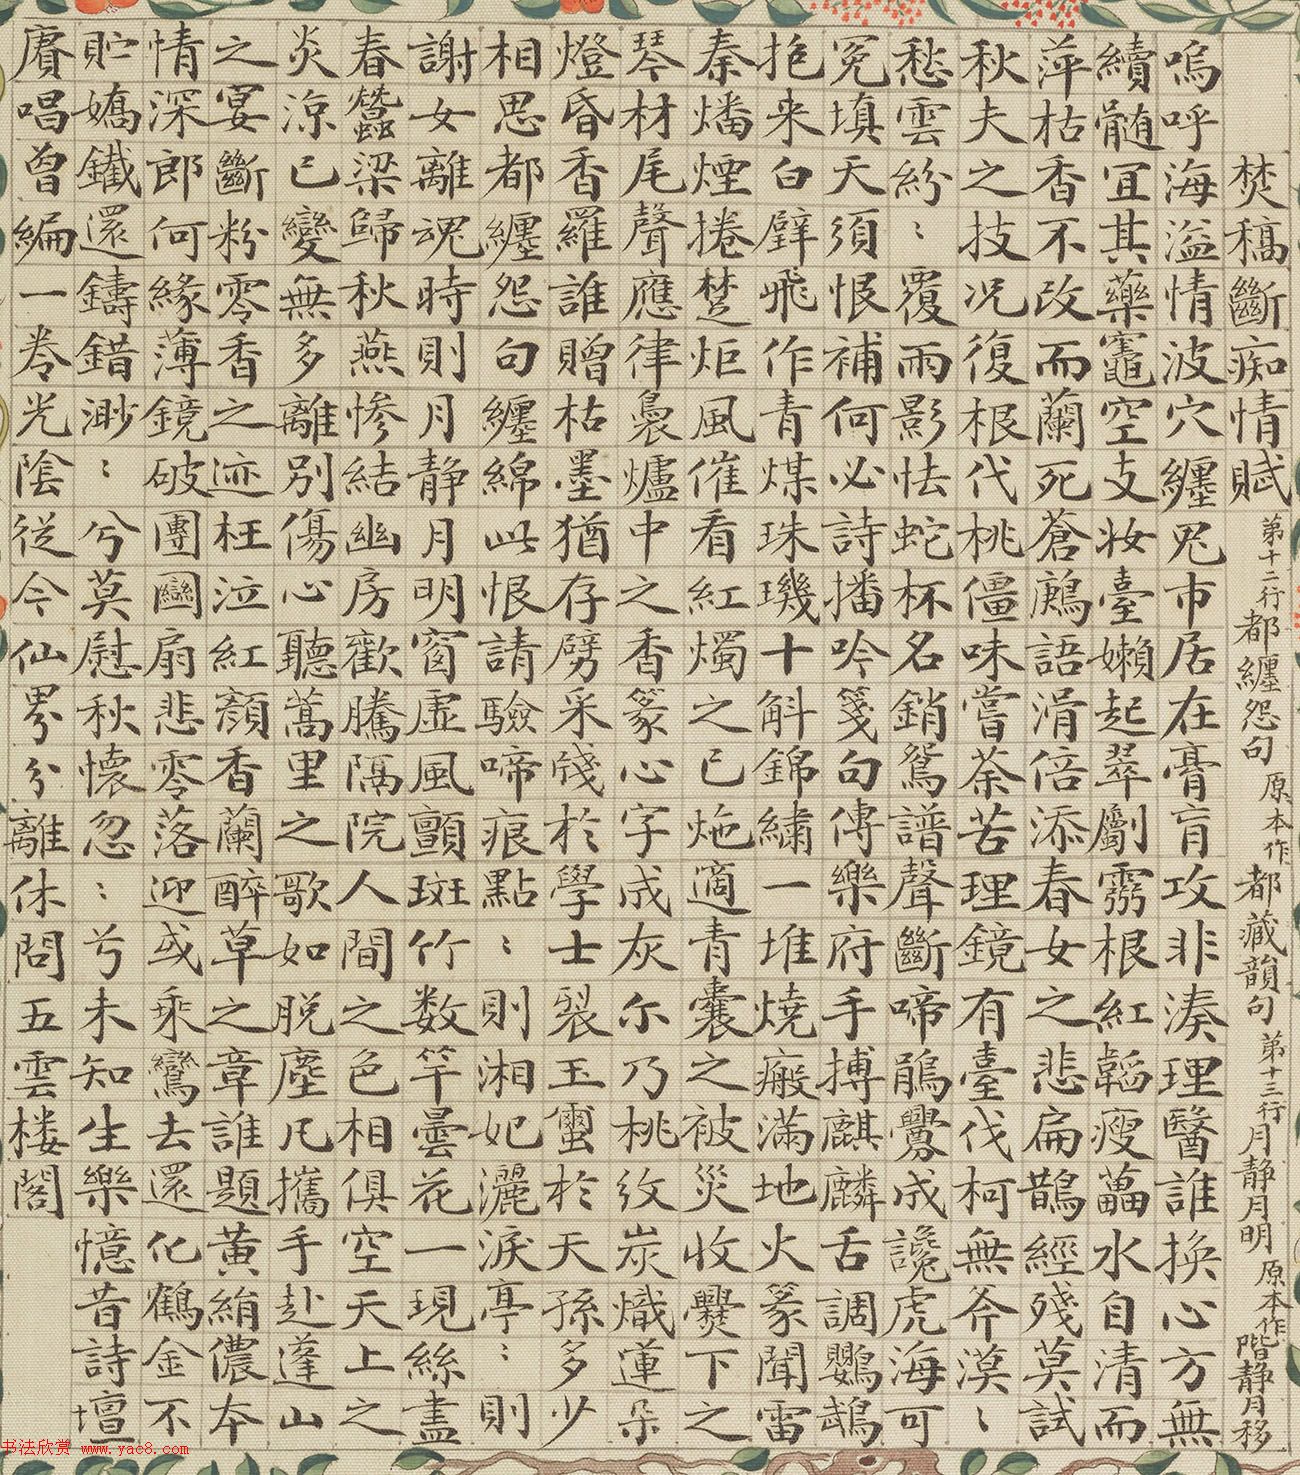 焚稿斷痴情賦 第十二行都纏怨句原本作都藏韻句 第十三行月靜月明原本作階靜月移
嗚呼海溢情波穴纏兕市居在膏肓攻非湊理醫誰換心方無
續髄宜其藥竈空支妝臺嬾起翠劚靈根紅韜瘦藟水自清而
萍枯香不改而蘭死蒼鷓語滑倍添春女之悲扁鵲經殘莫試
秋夫之技况復根代桃僵味嘗荼苦理鏡有臺伐柯無斧漠〻
愁雲紛〻覆雨影怯蛇杯名銷鴛譜聲斷啼鵑釁成讒虎海可
冤填天須恨補何必詩播吟箋句傳樂府手搏麒麟舌調鸚鵡
抱来白璧飛作青煤珠璣十斛錦繡一堆燒瘢滿地火篆聞雷
秦燔煙捲楚炬風催看紅燭之已灺適青囊之被災收爨下之
琴材尾聲應律裊爐中之香篆心字成灰尓乃桃紋炭熾蓮朵
燈昏香羅誰贈枯墨猶存劈采牋於學士裂玉璽於天孫多少
相思都纏怨句纏綿此恨請驗啼痕點〻則湘妃灑淚亭〻則
謝女離魂時則月靜月明窗虛風顫斑竹数竿曇花一現絲盡
春蠶梁歸秋燕慘結幽房歡騰隔院人間之色相俱空天上之
炎涼已變無多離別傷心聽蒿里之歌如脱塵凡攜手赴蓬山
之宴斷粉零香之迹枉泣紅顏香蘭醉草之章誰題黃絹儂本
情深郎何緣薄鏡破團圝扇悲零落迎或乘鸞去還化鶴金不
貯嬌鐵還鑄錯渺〻兮莫慰秋懷忽〻兮未知生樂憶昔詩壇
賡唱曾編一卷光陰從今仙界分離休問五雲楼閣
书法欣赏 www.yac8.com